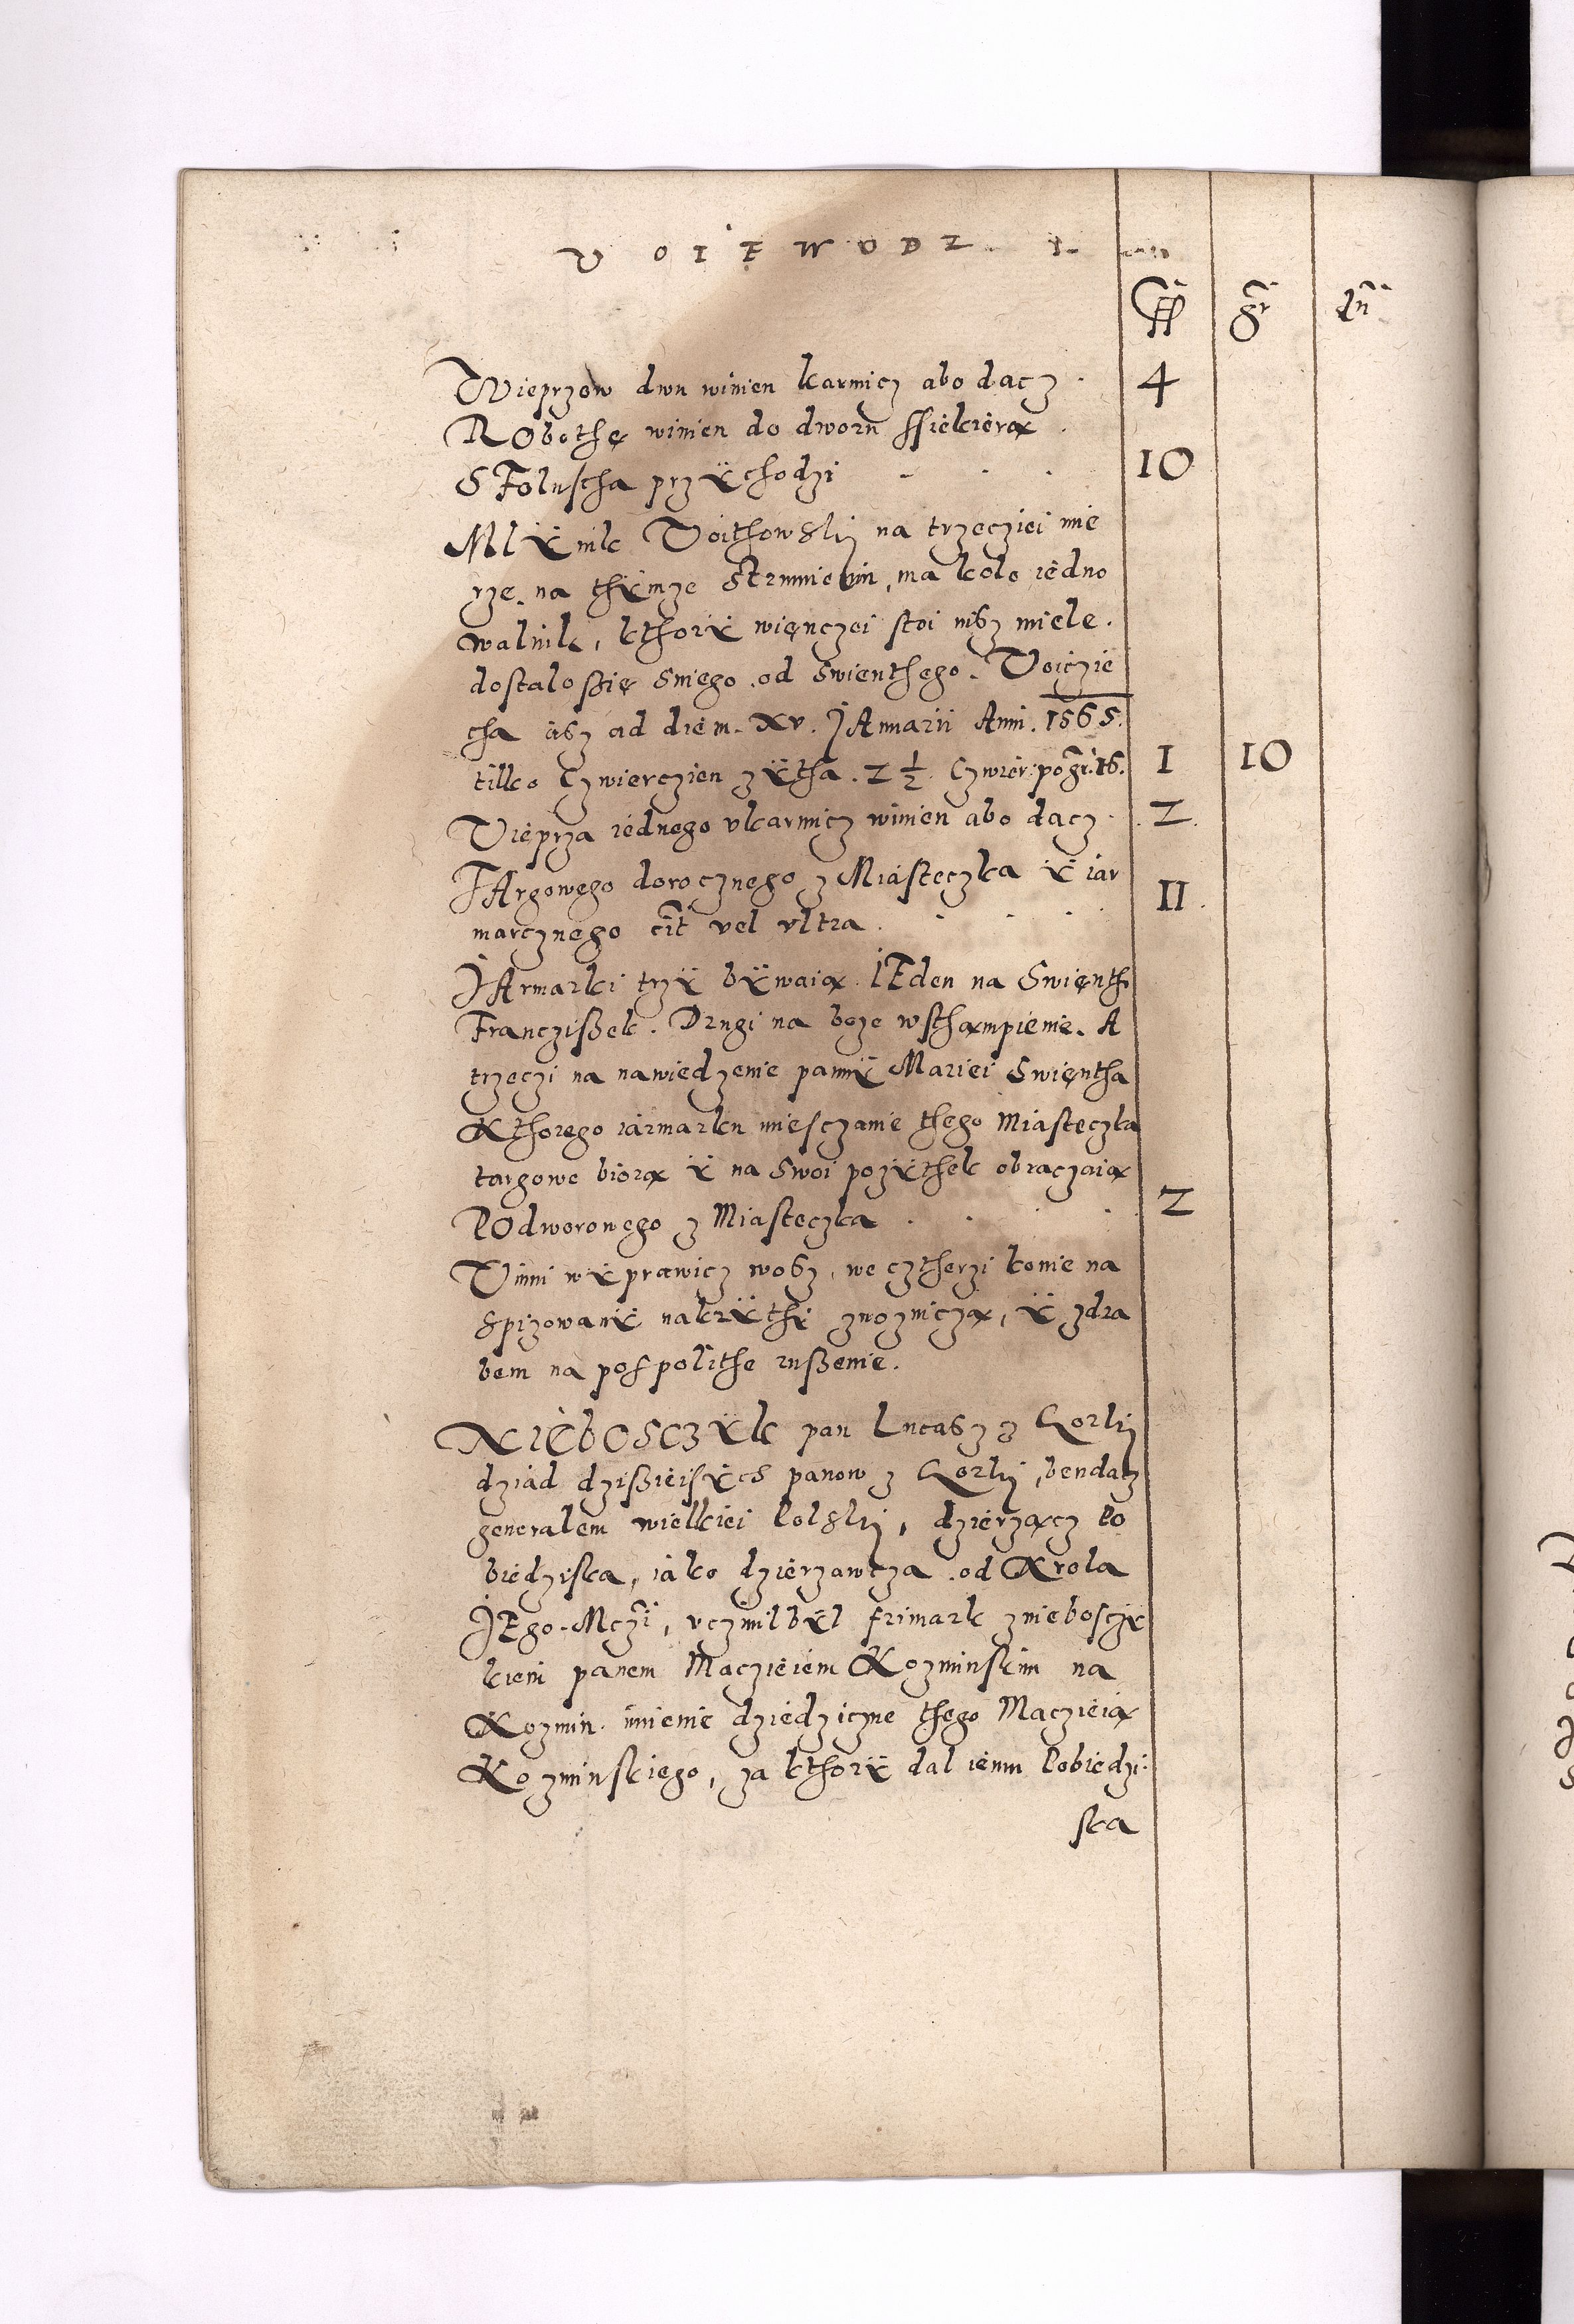 VOIEWODZ
ff gr dn
Wieprzow dwu winien karmicz abo dacz 4
RObothę winien do dworu ssiekierą
S Foluscha przÿchodzi 10
MlÿNik Voithowskÿ na trzecziei mie
rze na thÿmze strumieniu, ma koło iedno
walnik, kthorÿ więnczei stoi nisz miele.
dostalo ßię sniego od swienthego Voiczie
cha asz ad diem XV. JAnuarii Anni. 1565.
tilko czwierczien zÿtha. 2 ½. czwier: po gr: 16. I 10
Vieprza iednego vkarmicz winien abo dacz 2
TArgowego dorocznego z Miasteczka ÿ iar
marcznego cit vel vltra II
JArmarki trzÿ bÿwaią. IEden na Swięth
Francziszek. Drugi na boze wsthąmpienie. A
trzeczi na nawiedzenie pannÿ Mariei Swiętha
Kthorego iarmarku miesczanie thego Miasteczka
targowe biorą ÿ na swoi pozÿthek obraczaią
POdworowego z Miasteczka 2
Vinni wÿprawicz wosz, we cztherzi konie na
spizowanÿ nakrÿthÿ zwozniczą, ÿ zdra
bem na pospolithe rußenie.
NIEbOSCZÿk pan Lucasz z Gorkÿ
dziad dzißieiſÿch panow z Gorkÿ, bendacz
generalem wielkiei Polskÿ, dzierzączÿ Po
biedziska, iako dzierzawcza od Krola
JEgo Mczi, vczinil bÿl frimark z nieboscżÿ
kiem panem Maczieiem Kozminskim na
Kozmin imienie dziedziczne thego Maczieią
Kozminskiego, za kthorÿ dal iemu Pobiedzi:
ska